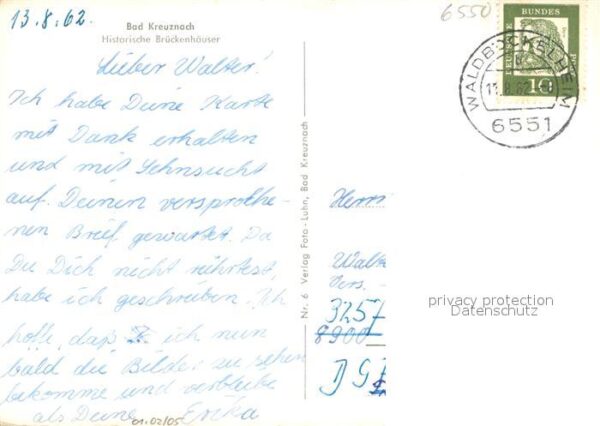 13.8.62.
Bad Kreuznach
Historische Brückenhäuser
Lieber Walter!
Ich habe Deine Karte
mit Dank erhalten
und mit Sehnsucht
auf Deinen versproche-
nen Brief gewartet. Da
Du Dich nicht rührtest,
habe ich geschrieben. Ich
hoffe, daß ich nun
bald die Bilder zu sehen
bekomme und verbleibe
als Deine Erika
01.02/05
Nr. 6 Verlag Foto-Luhn, Bad Kreuznach
6550
DEUTSCHE BUNDES
10
WALDBÖCKELHEIM
6551
Herrn
Walt
3257
8900
privacy protection
Datenschutz